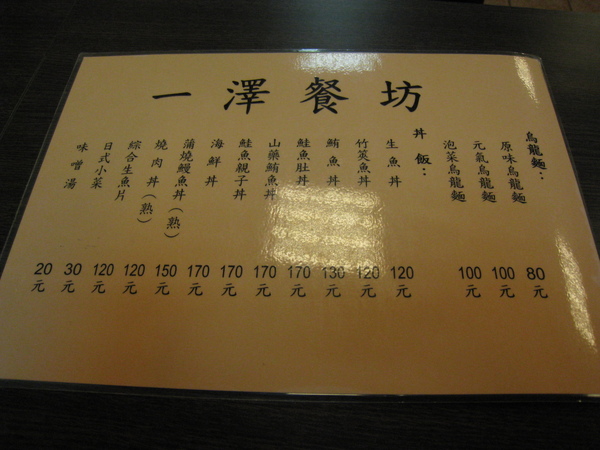 一澤餐坊
烏龍麵：
原味烏龍麵 80元
元氣烏龍麵 100元
泡菜烏龍麵 100元
丼飯：
生魚丼 120元
竹筴魚丼 120元
鮪魚丼 130元
鮭魚肚丼 170元
山藥鮪魚丼 170元
鮭魚親子丼 170元
海鮮丼 170元
蒲燒鰻魚丼（熟） 150元
燒肉丼（熟） 120元
綜合生魚片 120元
日式小菜 30元
味噌湯 20元